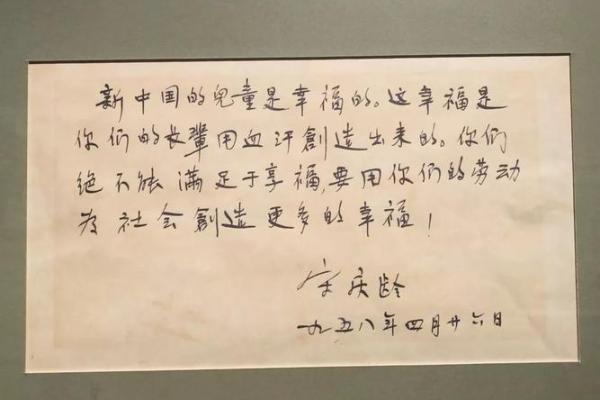 新中国的兒童是幸福的。这幸福是
你们的长輩用血汗創造出来的。你们
绝不能满足于享福,要用你们的劳动
为社会創造更多的幸福!
宋庆龄
一九五八年四月廿六日